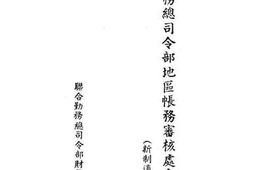 務總司令部地區帳務審核處
(新制
聯合勤務總司令部財